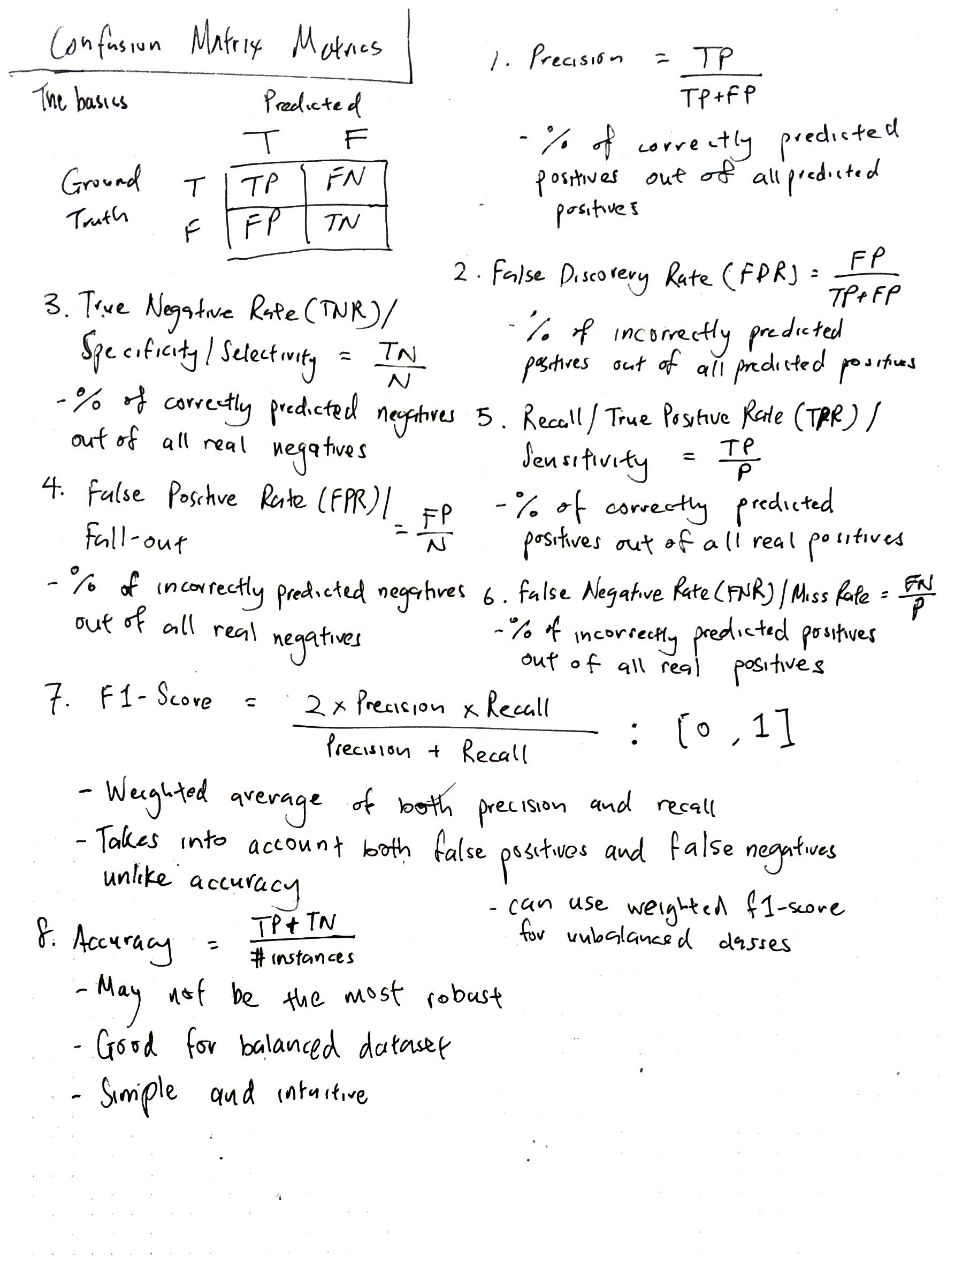 Confusion Matrix Metrics
The basics
Predicted
T F
Ground Truth
T TP FN
F FP TN
1. Precision = TP / TP+FP
- % of correctly predicted
positives out of all predicted
positives
2. False Discovery Rate (FDR) = FP / TP+FP
- % of incorrectly predicted
positives out of all predicted positives
3. True Negative Rate (TNR)/
Specificity/Selectivity = TN / N
- % of correctly predicted negatives
out of all real negatives
4. False Positive Rate (FPR)/
Fall-out = FP / N
- % of incorrectly predicted negatives
out of all real negatives
5. Recall/True Positive Rate (TPR)/
Sensitivity = TP / P
- % of correctly predicted
positives out of all real positives
6. False Negative Rate (FNR)/Miss Rate = FN / P
- % of incorrectly predicted positives
out of all real positives
7. F1-Score = 2 x Precision x Recall / Precision + Recall : [0, 1]
- Weighted average of both precision and recall
- Takes into account both false positives and false negatives
unlike accuracy
- can use weighted f1-score
for unbalanced classes
8. Accuracy = TP + TN / # instances
- May not be the most robust
- Good for balanced dataset
- Simple and intuitive